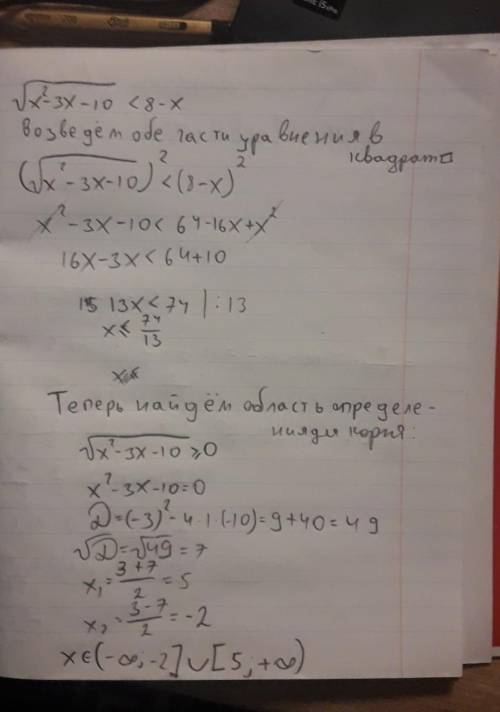 √(x²-3x-10) < 8-x
Возведём обе части уравнения в
квадрат
(√(x²-3x-10))² < (8-x)²
x²-3x-10 < 64-16x+x²
16x-3x < 64+10
13x < 74 | : 13
x < 74/13
x <
Теперь найдём область определе-
ния для корня:
√(x²-3x-10) ≥ 0
x²-3x-10=0
D=(-3)²-4·1·(-10)=9+40=49
√D=√49=7
x₁=(3+7)/2=5
x₂=(3-7)/2=-2
x∈(-∞;-2]∪[5;+∞)